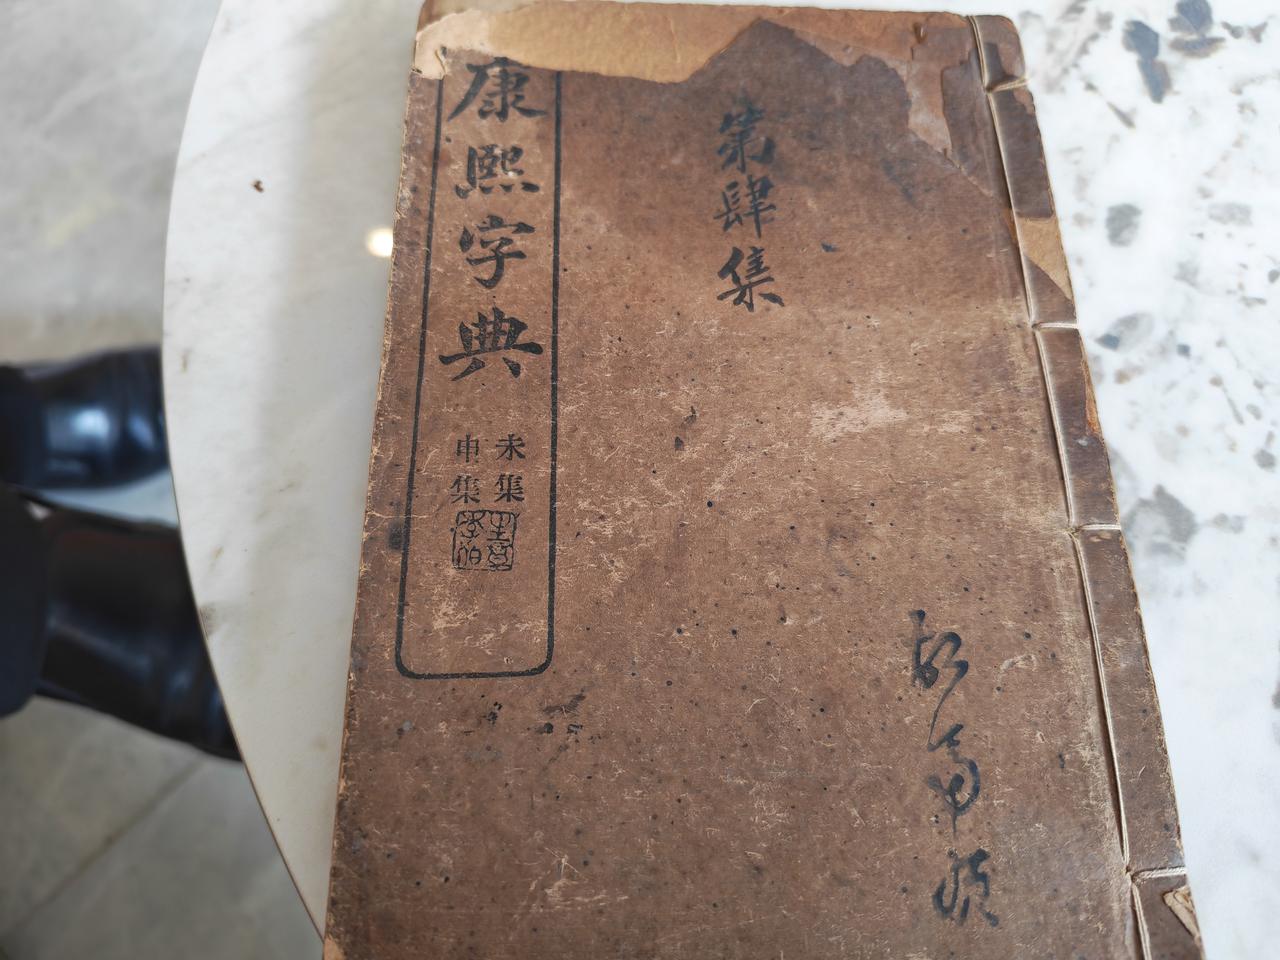 第肆集
康熙字典
未集
申集